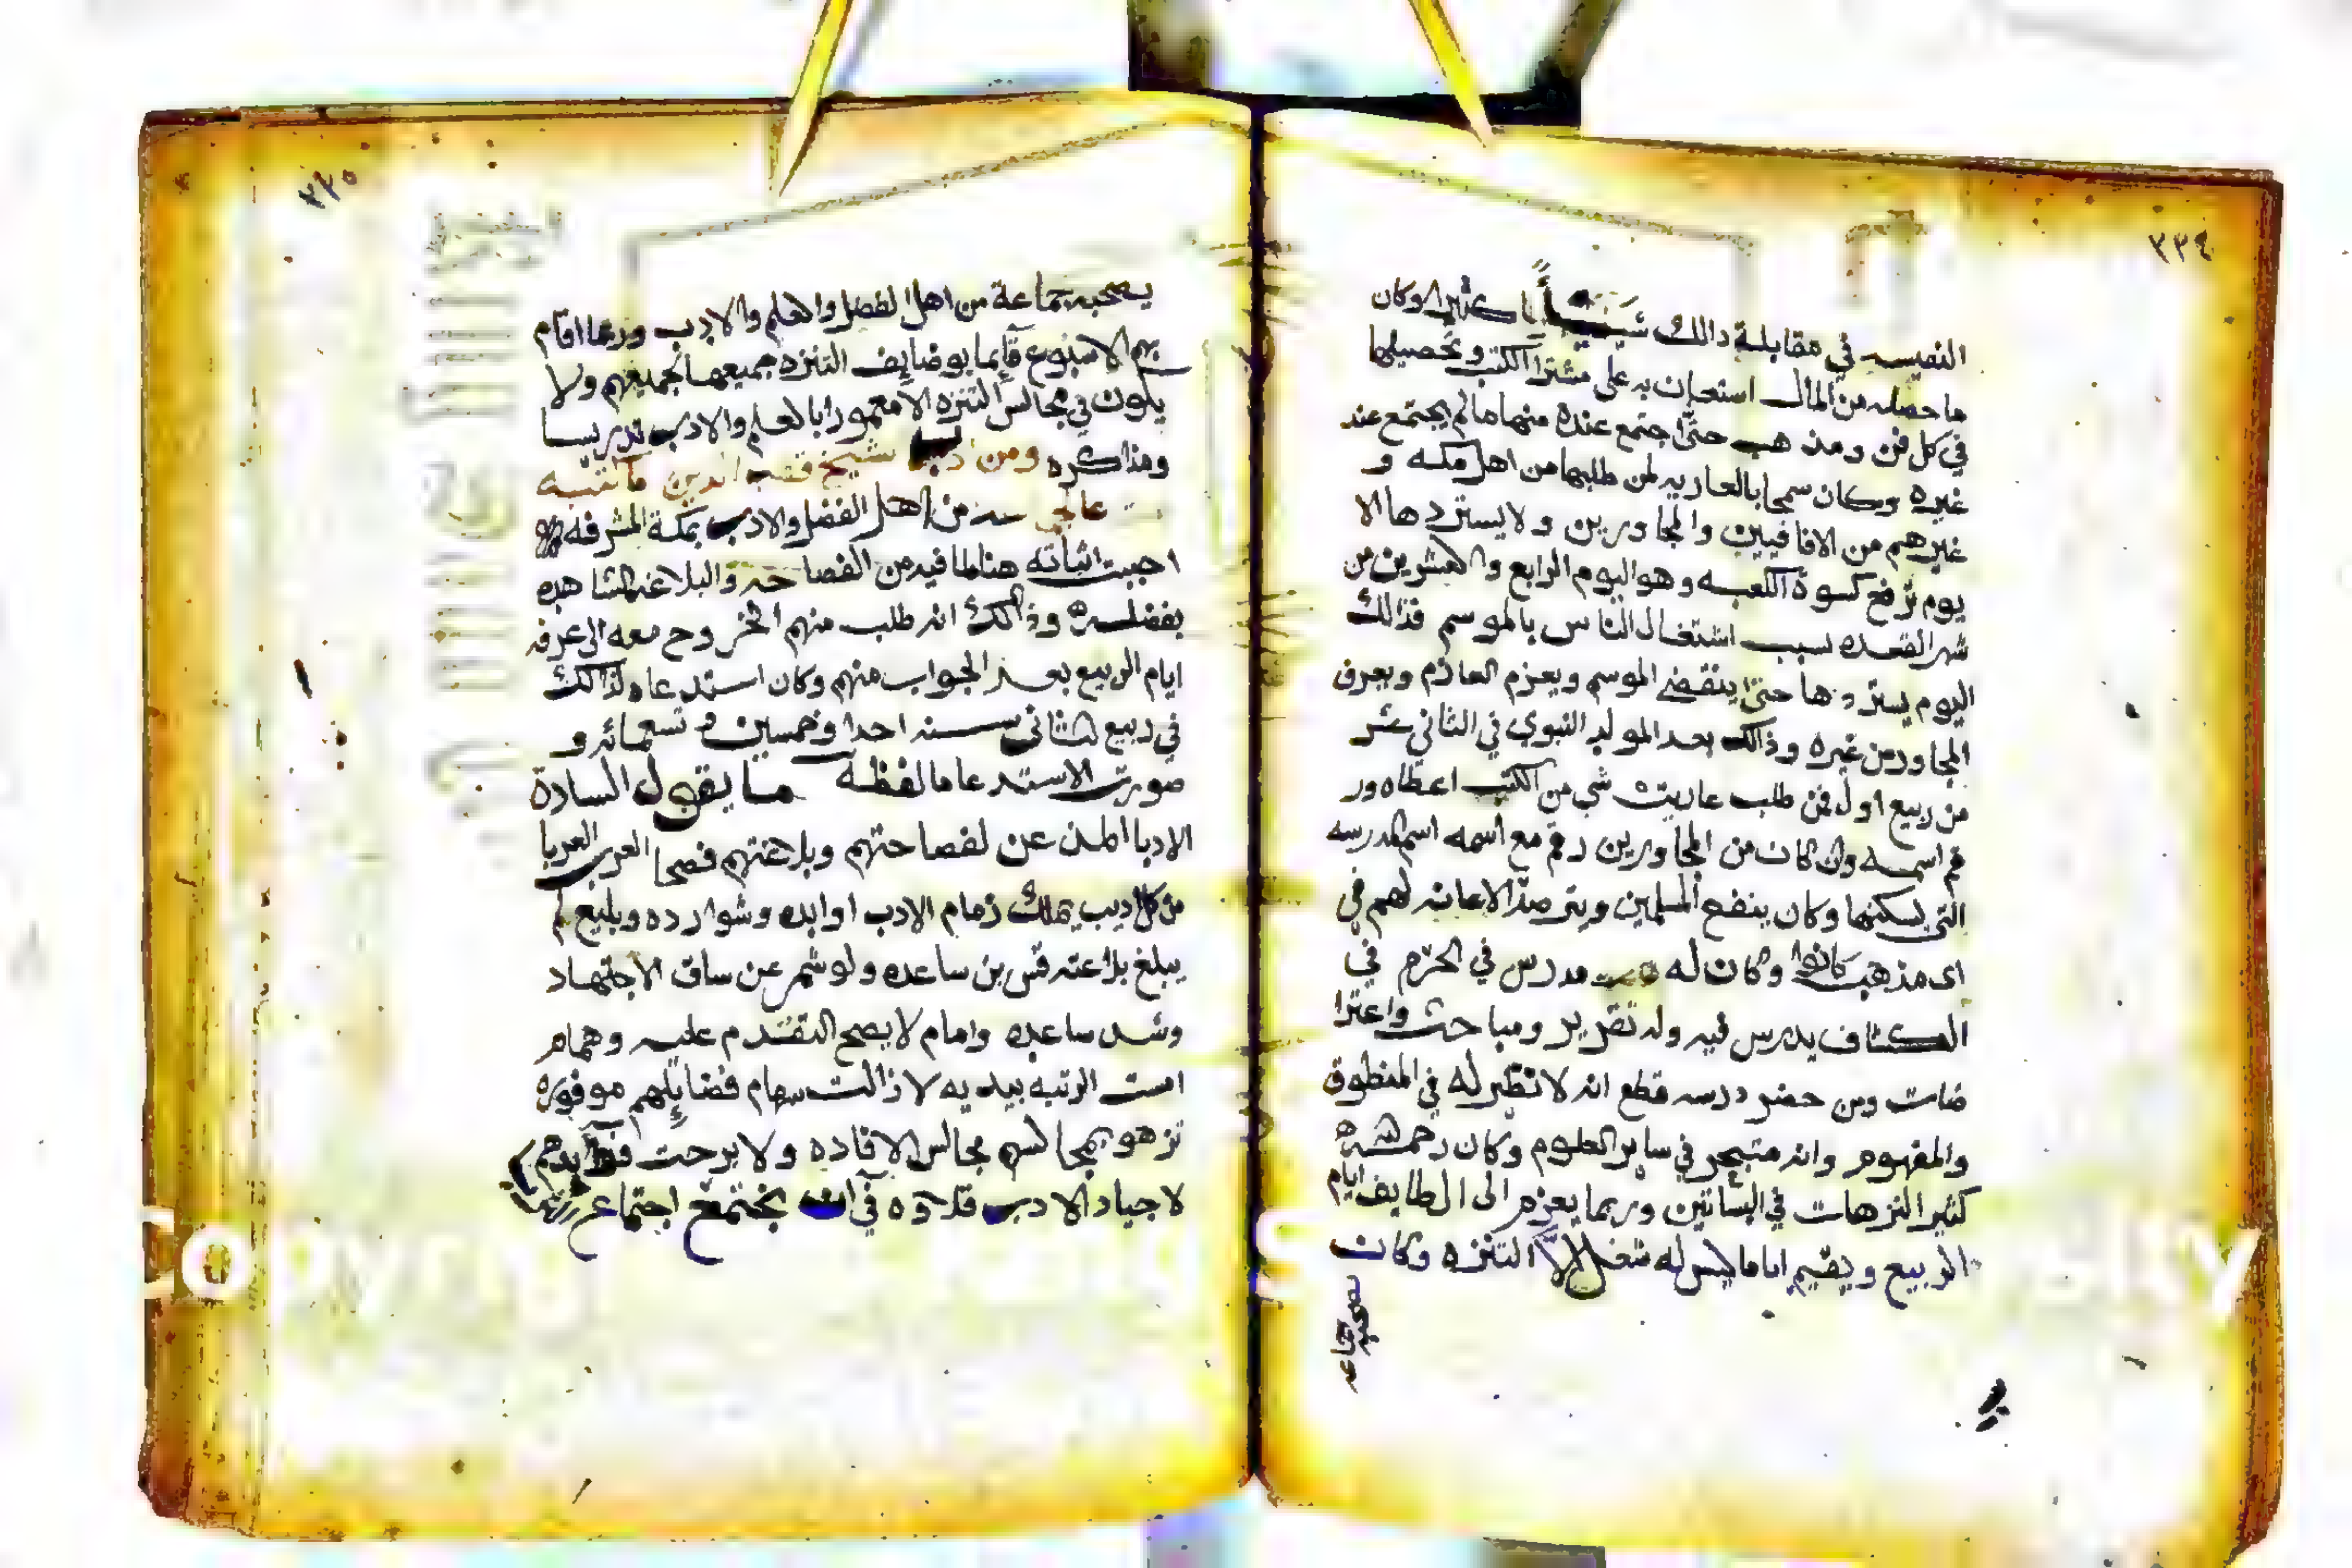 ٣٣٤
النفيسه في مقابلة ذالك شيئاً كثيرا وكان
ما حصله من المال استعان به على مشترا الكتب وتحصيلها
في كل فن ومذهب حتى اجتمع عنده منها ما لم يجتمع عند
غيره وكان سمحا بالعاريه لمن طلبها من اهل مكه و
غيرهم من الافاقيين والمجاورين ولا يستردها الا
يوم ترفع كسوة الكعبه وهو اليوم الرابع والعشرين من
شهر القعده سبب اشتغال الناس بالموسم فذالك
اليوم يستردها حتى ينقضي الموسم ويعزم العازم ويعرف
المجاور من غيره وذالك بعد المولد النبوي في الثاني عشر
من ربيع اول فمن طلب عاريت شي من الكتب اعطاه ور
قم اسمه وان كان من المجاورين رقم مع اسمه اسم المدرسه
التي يسكنها وكان ينفع المسلمين ويترصد الاعانه لهم في
اى مذهب كانوا وكان له مدرس في الحرم في
الكشاف يدرس فيه وله تقرير ومباحث واعترا
ضات ومن حضر درسه قطع انه لا نظير له في المنطوق
والمفهوم وانه متبحر في ساير العلوم وكان رحمه الله
كثير النزهات في البساتين وربما يعزم الى الطايف ايام
الربيع ويقيم اياما ليس له شغل الا التنزه وكان
يصحبه جماعه
٣٣٥
يصحبه جماعة من اهل الفضل والعلم والادب وربما اقام
بهم الاسبوع قآيما بوضايف التنزه جميعها لجميعهم ولا
يكون في مجالس التنزه الا معمورا بالعلم والادب تدريسا
ومذاكره ومن ادب الشيخ قطب الدين ما كتبه
من اهل الفضل والادب بمكة المشرفه
احببت اثباته هنا لما فيه من الفصاحه والبلاغه الشاهده
بفضله وذالك انه طلب منهم الخروح معه الى عرفه
ايام الربيع بعد الجواب منهم وكان استدعاه لذالك
في ربيع الثاني سنه احدا وخمسين و تسعمائه و
صورت الاستدعا ما لفظه ما يقول السادة
الادبا المذعن لفصاحتهم وبلاغتهم فصحا العرب العربا
من كل اديب يملك زمام الادب اوابده وشوارده وبليغ لم
يبلغ بلاغته قس بن ساعده ولو شمر عن ساق الاجتهاد
وشد ساعده وامام لا يصح التقدم عليه وهمام
امست الرتبه بيديه لا زالت سهام فضايلهم موفوره
تزهو بمجالسهم مجالس الافاده ولا برحت فوآيدهم
لاجياد الادب قلاده في ان يجتمع اجتماع